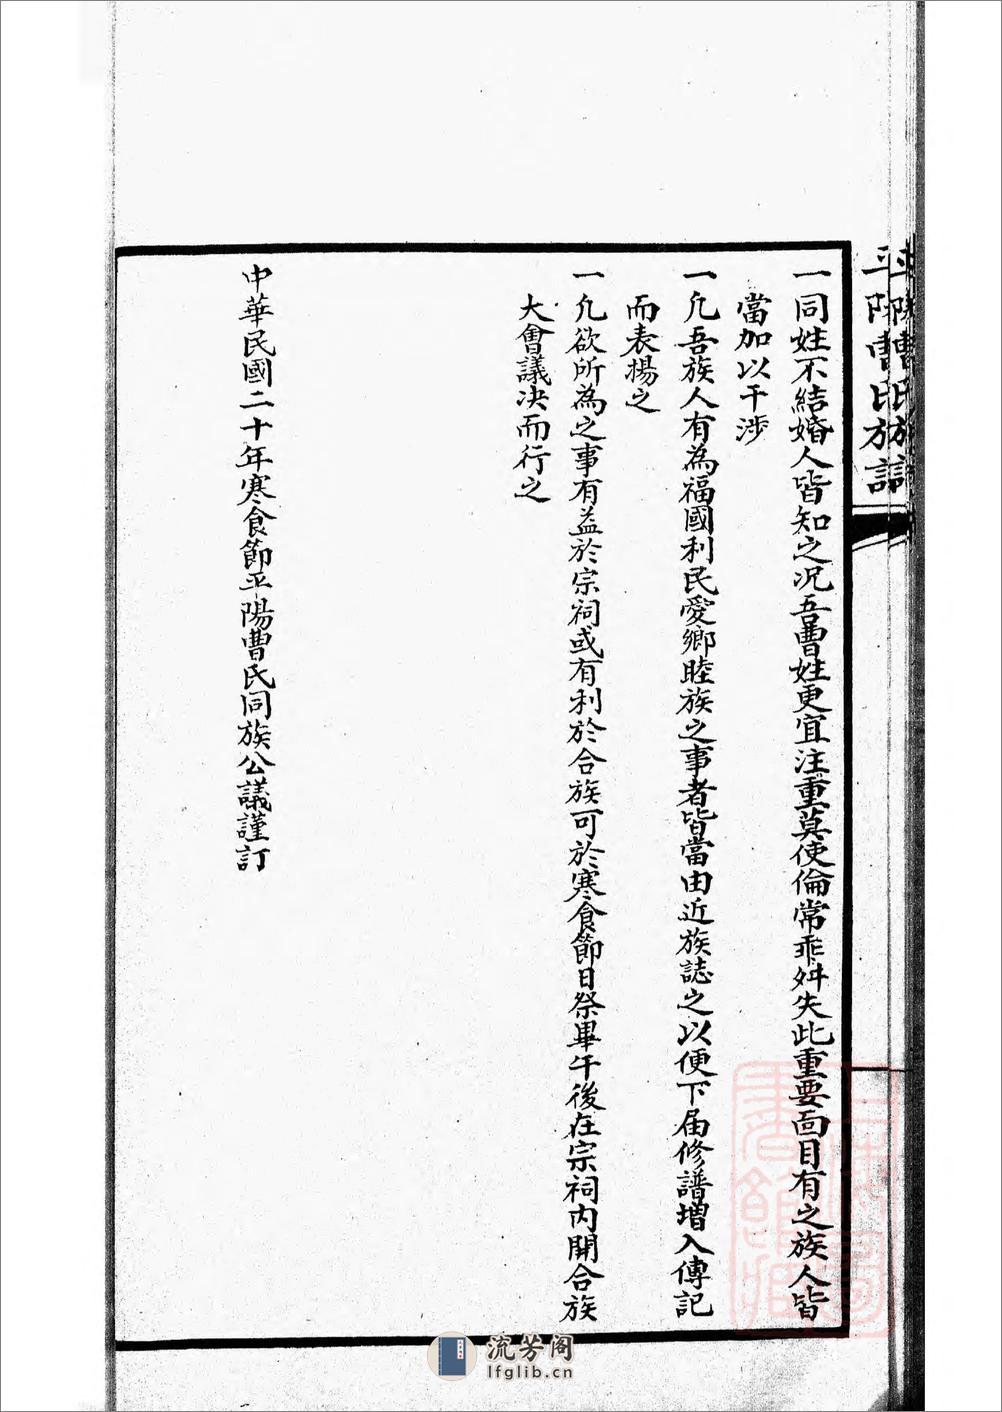 平陽曹氏族譜
一同姓不結婚人皆知之况吾曹姓更宜注重莫使倫常乖舛失此重要面目有之族人皆
當加以干涉
一凢吾族人有為福國利民愛鄉睦族之事者皆當由近族誌之以便下届修譜增入傳記
而表揚之
一凢欲所為之事有益於宗祠或有利於合族可於寒食節日祭畢午後在宗祠内開合族
大會議决而行之
中華民國二十年寒食節平陽曹氏同族公議謹訂
流芳阁
lfglib.cn